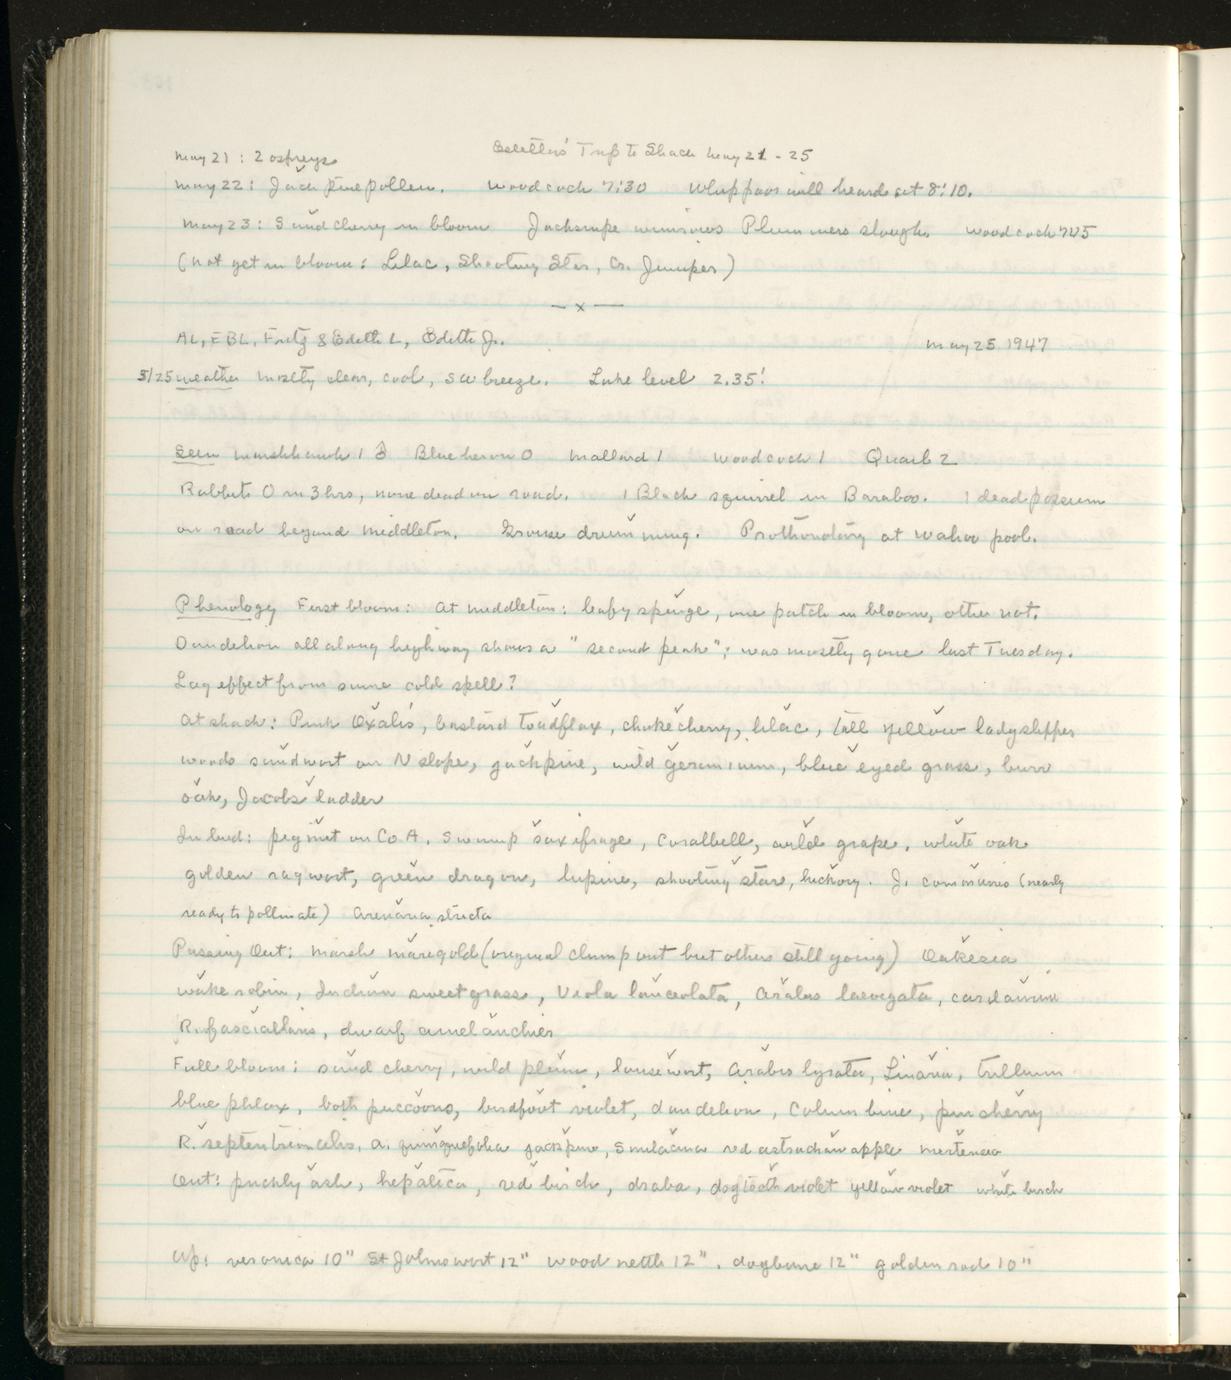 Estella's Trip to Shack May 21 - 25
May 21: 2 ospreys
May 22: Jack pine pollen. Woodcock 7:30 Whippoorwill heard at 8:10.
May 23: Sand cherry in bloom Jacksnipe Plummers slough. Woodcock 7:25
(Not yet in bloom: Lilac, Shooting Star, Cr. Juniper)
— x —
AL, EBL, Fritz & Edith L, Edith Jr.
May 25 1947
5/25 Weather mostly clear, cool, SW breeze. Lake level 2.35'
Seen Marshhawk 1 ♂ Blue heron 0 Mallard 1 Woodcock 1 Quail 2
Rabbits 0 in 3 hrs, none dead on road. 1 Black squirrel in Baraboo. 1 dead possum
on road beyond Middleton. Grouse drumming. Prothonotary at Wahoo pool.
Phenology First bloom: At Middleton: leafy spurge, one patch in bloom, other not.
Dandelion all along highway shows a "second peak"; was mostly gone last Tuesday.
Lag effect from some cold spell?
At shack: Pink Oxalis, bastard toadflax, chokecherry, lilac, tall yellow ladyslipper
woods sandwort on N slope, jackpine, wild geranium, blue eyed grass, burr
oak, Jacobs ladder
In bud: pignut on Co A, Swamp saxifrage, Coralbell, wild grape, white oak
golden ragwort, green dragon, lupine, shooting star, hickory. J. communis (nearly
ready to pollinate) Arenaria stricta
Passing Out: Marsh marigold (original clump out but others still going) Oakesia
wake robin, Indian sweetgrass, Viola lanceolata, Arabis laevigata, cardamine
R. fascicularis, dwarf amelanchier
Full bloom: sand cherry, wild plum, lousewort, Arabis lyrata, Linaria, trillium
blue phlox, both puccoons, birdfoot violet, dandelion, Columbine, pin cherry
R. septentrionalis, A. quinquefolia jackpine, Smilacina red astrachan apple mertensia
Out: prickly ash, hepatica, red birch, draba, dogtooth violet yellow violet white birch
Up: veronica 10" St Johnswort 12" wood nettle 12", dogbane 12" goldenrod 10"